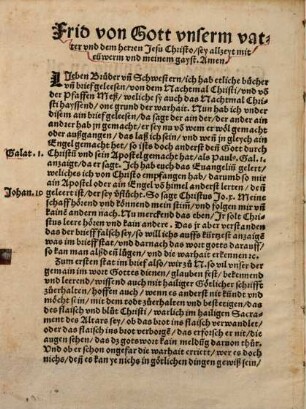 Frid von Gott vnserm vat-
ter vnd dem herren Jesu Christo / sey allzeyt mit
eüwerm vnd meinem gayst. Amen /
Jeben Brüder vñ Schwestern / ich hab etliche bücher
vñ brief geleesen / von dem Nachtmal Christi / vnd võ
der Pfaffen Meß / weliche sy auch das Nachtmal Chri-
sti hayssend / one grund der warhait. Nun hab ich vnder
disem ain brief geleesen / da sagt der ain der / der ander ain
ander hab jn gemacht / er sey nů wem er wöl gemacht
oder außgangen / das laß ich sein / vnd weñ jn gleych ain
Engel gemacht het / so ists doch anderst deñ Gott durch
Galat. 1.
Christũ vnd sein Apostel gemacht hat / als Pauls Gal. 1.
anzaigt / da er sagt. Ich hab euch das Euangeliũ geleert /
weliches ich von Christo empfangen hab / darumb so mit
ain Apostel oder ain Engel võ himel anderst lerten / deñ
Johan. 10
geleert ist / der sey v̈flůcht. So sagt Christus Jo. 10. Meine
schaff hörend vnd künnend mein stim / vnd folgen mir vñ
kainẽ andern nach. Nu merckend das eben / Jr solt Chri-
stus leere hören / vnd kain andere. Das jr aber verstanden
das der brieff falsch sey / so will ichs auffs kürtzest anzaigẽ
was im brieff stat / vnd darnach das wort gotts darauff /
so kan man alsdeñ lůgen / vnd die warhait erkennen ꝛc.
Zum ersten stat im brief also / wir zů N. so vil vnser der
gemain im wort Gottes dienen / glauben fest / bekennend
vnd leerend / wissend auch mit hailiger Götlicher schrifft
zůerhalten / hoffen auch / wenn es anderst nit kündt vnd
möcht sein / mit dem tode zůerhalten vnd bestetigen / das
des flaisch vnd blůt Christi / warlich im hailigen Sacra-
ment des Altars sey / ob das brot ins flaisch verwandlet /
oder das flaisch ins brot verborgẽ / das erforsch er nit / die
augen sehen / das dz gotswort kain meldũg daruon thůt.
Vnd ob er schon ongefar die warhait errierr / wer es doch
nichs / deñ es kan ye nichts in götlichen dingen gewiß sein /